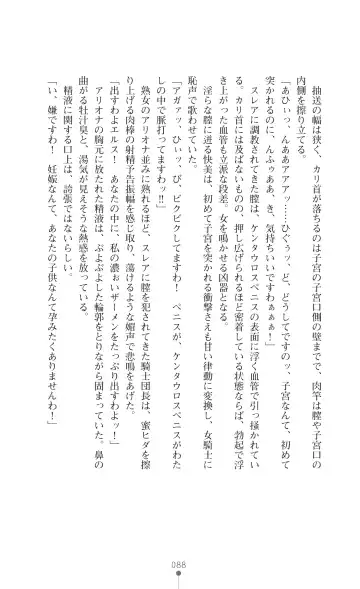 抽送の幅は狭く、カリ首が落ちるのは子宮の子宮口側の壁までで、肉竿は膣や子宮口の
内側を擦り立てる。
「あひぃっ、んああアアッ……ひぐぅッ、ど、どうしてですのッ、子宮なんて、初めて
突かれるのに、んふぅああ、き、気持ちいいですわぁぁぁ！」
　スレアに調教されてきた膣は、ケンタウロスペニスの表面に浮く血管で引っ掻かれてい
る。カリ首には及ばないものの、押し広げられるほど密着している状態ならば、勃起で浮
き上がった血管も立派な段差。女を鳴かせる凶器となる。
　淫らな膣に迸る快美は、初めて子宮を突かれる衝撃さえも甘い律動に変換し、女騎士に
恥声で歌わせていた。
「アガァッ、ひぃッ、び、ビクビクしてますわ！　ペニスが、ケンタウロスペニスがわた
しの中で脈打ってますわッ!!」
　熟女のアリオナ並みに熟れるほど、スレアに膣を犯されてきた騎士団長は、蜜ヒダを擦
り上げる肉棒の射精予告振幅を感じ取り、蕩けるような媚声で悲鳴をあげた。
「出すわよエルス！　あなたの中に、私の濃ぉいザーメンをたっぷり出すわよッ！」
　アリオナの胸元に放たれた精液は、ぷよぷよした輪郭をとりながら固まっていた。鼻の
曲がる牡汁臭と、湯気が見えそうな熱感を放っている。
　精液に関する口上は、誇張ではないらしい。
「い、嫌ですわ！　妊娠なんて、あなたの子供なんて孕みたくありませんわ！」
088